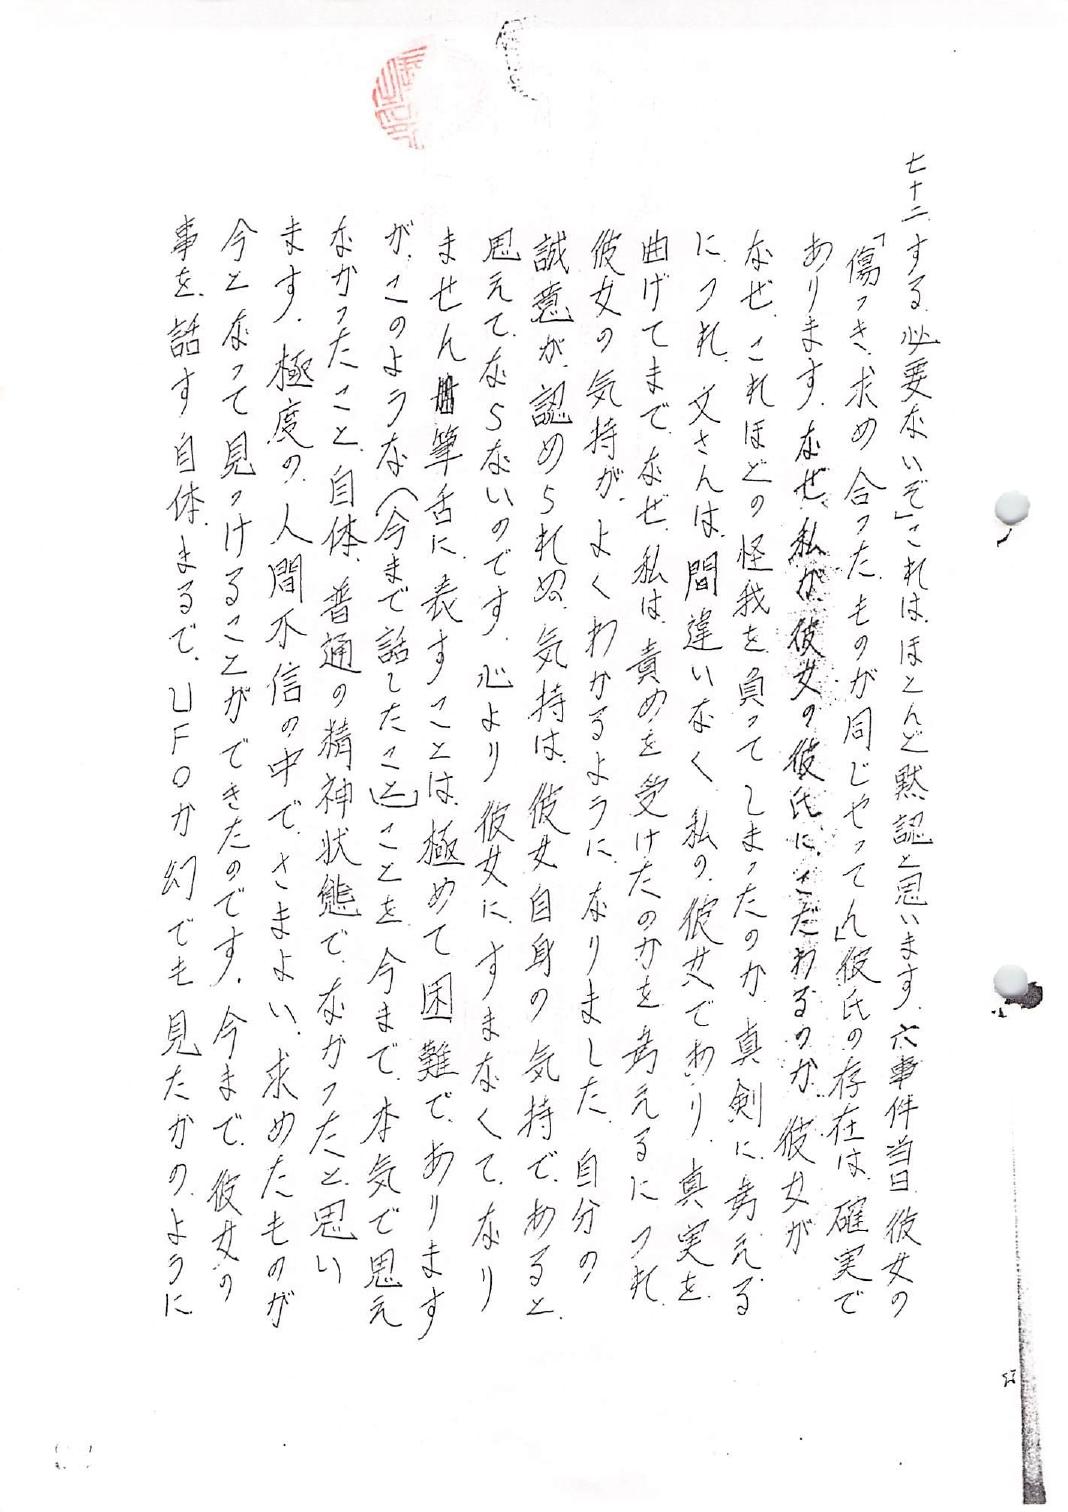 七十二、する必要ないぞ」これは、ほとんど黙認と思います、六事件当日彼女の
「傷つき、求め合ったものが同じやってん」彼氏の存在は、確実で
あります、なぜ、私が、彼女の彼氏に、こだわるのか、彼女が
なぜ、これほどの怪我を、負ってしまったのか、真剣に、考える
につれ、父さんは、間違いなく、私の、彼女であり、真実を、
曲げてまで、なぜ、私は、責めを受けたのかを考えるにつれ、
彼女の気持が、よくわかるように、なりました、自分の
誠意が、認められぬ、気持は、彼女自身の気持で、あると、
思えて、ならないのです、心より彼女に、すまなくて、なり
ません筆舌に、表すことは、極めて困難で、あります
が、このような(今まで話したこと)ことを、今まで、本気で思え
なかったこと、自体、普通の精神状態で、なかったと、思い
ます、極度の、人間不信の中で、さまよい、求めたものが
今となって見つけることができたのです、今まで、彼女の
事を、話す自体、まるで、UFOか幻でも見たかのように